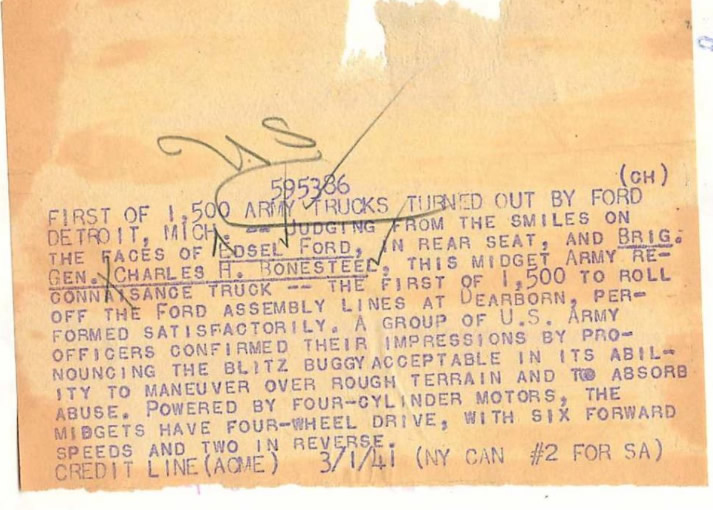 U.S
595386 (CH)
FIRST OF 1,500 ARMY TRUCKS TURNED OUT BY FORD
DETROIT, MICH. -- JUDGING FROM THE SMILES ON
THE FACES OF EDSEL FORD, IN REAR SEAT, AND BRIG.
GEN. CHARLES H. BONESTEEL, THIS MIDGET ARMY RE-
CONNAISANCE TRUCK -- THE FIRST OF 1,500 TO ROLL
OFF THE FORD ASSEMBLY LINES AT DEARBORN, PER-
FORMED SATISFACTORILY. A GROUP OF U.S. ARMY
OFFICERS CONFIRMED THEIR IMPRESSIONS BY PRO-
NOUNCING THE BLITZ BUGGY ACCEPTABLE IN ITS ABIL-
ITY TO MANEUVER OVER ROUGH TERRAIN AND TO ABSORB
ABUSE. POWERED BY FOUR-CYLINDER MOTORS, THE
MIDGETS HAVE FOUR-WHEEL DRIVE, WITH SIX FORWARD
SPEEDS AND TWO IN REVERSE.
CREDIT LINE (ACME) 3/1/41 (NY CAN #2 FOR SA)